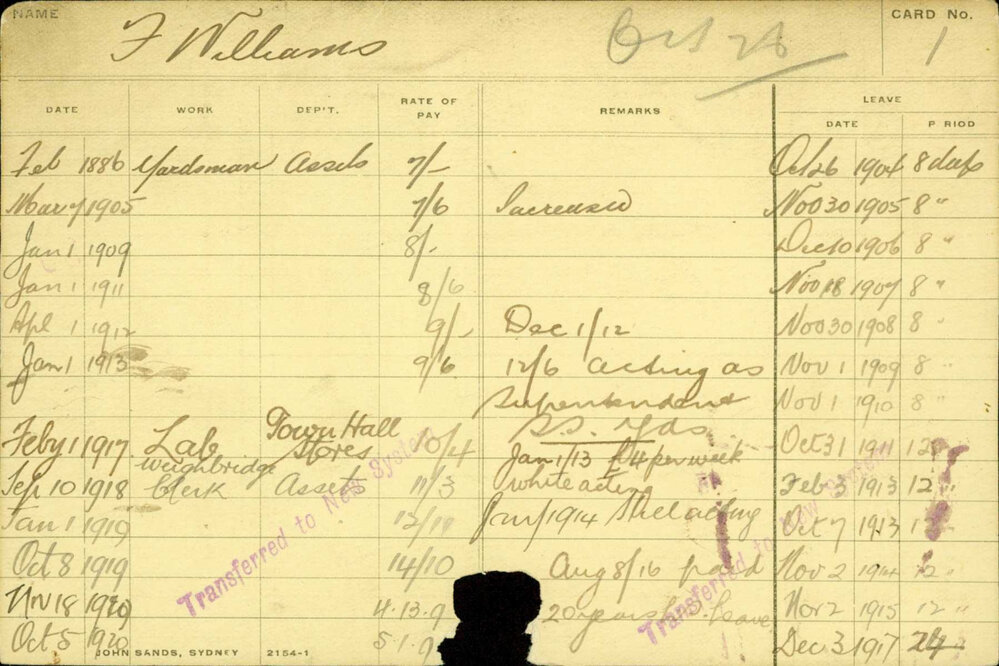 NAME F Williams Oct 26 CARD No. 1
DATE WORK DEP'T. RATE OF PAY REMARKS LEAVE
DATE P RIOD
Feb 1886 Yardsman Assets 7/- Oct 26 1904 8 days
Mar 7 1905 7/6 Increased Nov 30 1905 8 "
Jan 1 1909 8/- Dec 10 1906 8 "
Jan 1 1911 8/6 Nov 18 1907 8 "
Apl 1 1912 9/- Dec 1/12 Nov 30 1908 8 "
Jan 1 1913 9/6 12/6 acting as Nov 1 1909 8 "
Superintendent Nov 1 1910 8
Feby 1 1917 Lab Town Hall Stores 10/4 S.S. Yds Oct 31 1911 12
Jan 1/13 £4 per week
Sep 10 1918 Weighbridge Clerk Assets 11/3 while acting Feb 3 1913 12 "
Jan 1 1919 12/11 Jan 1/1914 Still acting Oct 7 1913
Oct 8 1919 14/10 Aug 8/16 paid Nov 2 1914 12
Nov 18 1920 4.13.9 20 years leave Nov 2 1915 12 "
Oct 5 1920 5.1.9 Dec 3 1917 24
Transferred to New System
Transferred to New System
JOHN SANDS, SYDNEY 2154-1